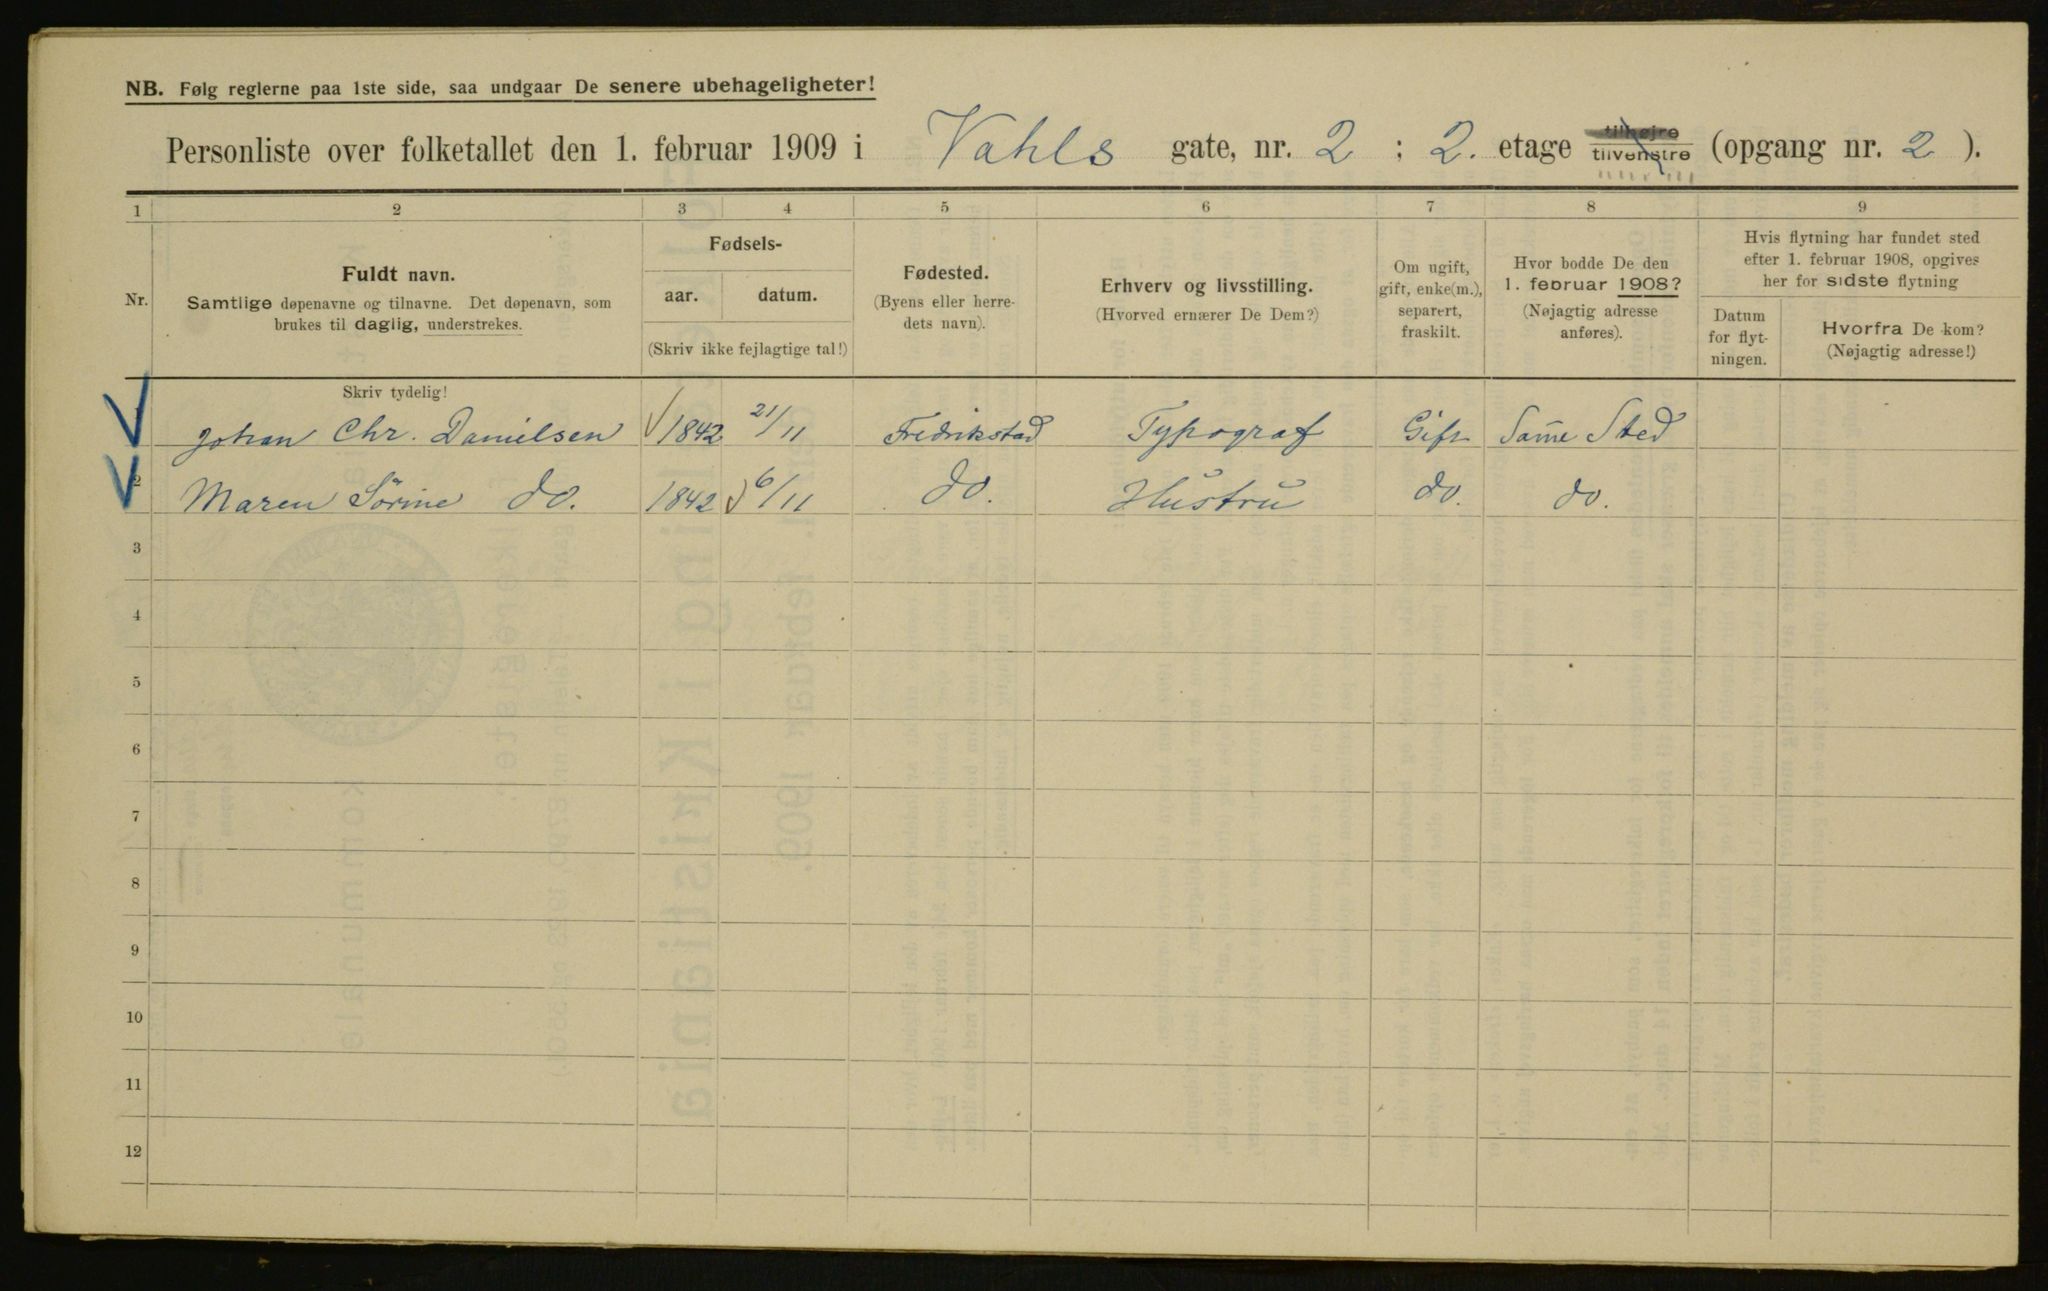 NB. Følg reglerne paa 1ste side, saa undgaar De senere ubehageligheter!
Personliste over folketallet den 1. februar 1909 i Vahls gate, nr. 2 : 2. etage tilhøjre tilvenstre (opgang nr. 2 ).
1 2 3 4 5 6 7 8 9
Nr.
Fuldt navn.
Samtlige døpenavne og tilnavne. Det døpenavn, som
brukes til daglig, understrekes.
Fødsels-
aar. datum.
(Skriv ikke fejlagtige tal!)
Fødested.
(Byens eller herre-
dets navn).
Erhverv og livsstilling.
(Hvorved ernærer De Dem?)
Om ugift,
gift, enke(m.),
separert,
fraskilt.
Hvor bodde De den
1. februar 1908?
(Nøjagtig adresse
anføres).
Hvis flytning har fundet sted
efter 1. februar 1908, opgives
her for sidste flytning
Datum
for flyt-
ningen.
Hvorfra De kom?
(Nøjagtig adresse!)
Skriv tydelig!
1 Johan Chr. Danielsen 1842 21/11 Fredrikstad Typograf Gift Same Sted
2 Maren Sörine do. 1842 6/11 do. Hustru do. do.
3
4
5
6
7
8
9
10
11
12